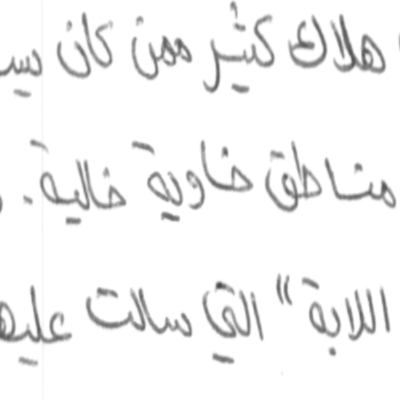 هلاك كثير ممن كان يس
مناطق خاوية خالية.
اللابة" التي سالت عليه